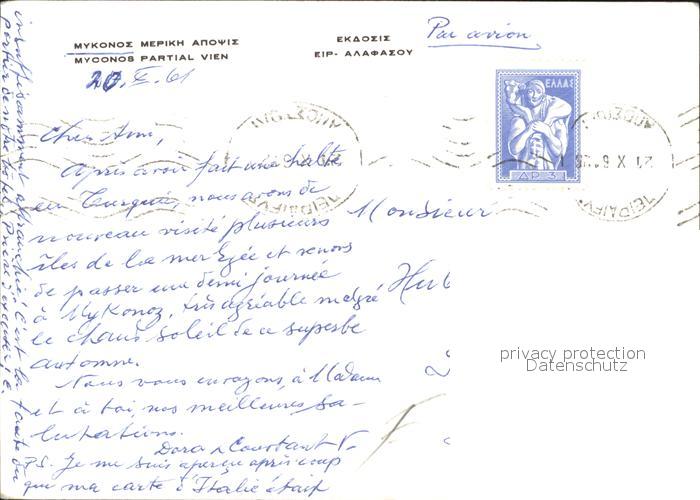 ΜΥΚΟΝΟΣ ΜΕΡΙΚΗ ΑΠΟΨΙΣ
MYCONOS PARTIAL VIEN
ΕΚΔΟΣΙΣ
ΕΙΡ- ΑΛΑΦΑΣΟΥ
Par avion
20.X.61
ΕΛΛΑΣ
ΔΡ 3
Cher Ami,
Après avoir fait une halte
en Turquie, nous avons de
nouveau visité plusieurs
îles de la mer Egée et venons
de passer une demi journée
à Mykonoz, très agréable malgré
le chaud soleil de ce superbe
automne.
Nous vous envoyons, à Madame
et à toi, nos meilleures sa-
lutations.
Dora & Constant V.
P.S. Je me suis aperçu après coup
que ma carte d'Italie était
insuffisamment affranchie. C'est la faute du
portier de notre hôtel. Prière d'excuser,
Monsieur
Hub
privacy protection
Datenschutz